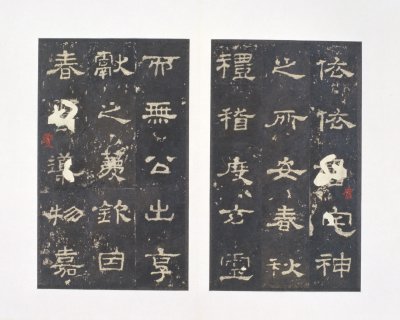 依依宅神
之所安春秋
禮稽度玄靈
而無公出享
獻之薦欽因
春導物嘉